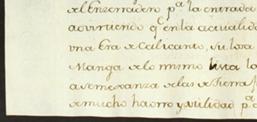 el Enserradero pª. la entrada
advirtiendo qᵉ en la actualida
una Era de Calicanto, su losa
Manga de lo mismo
asemexanza de las de Tierra
de mucho haorro y utilidad pª.